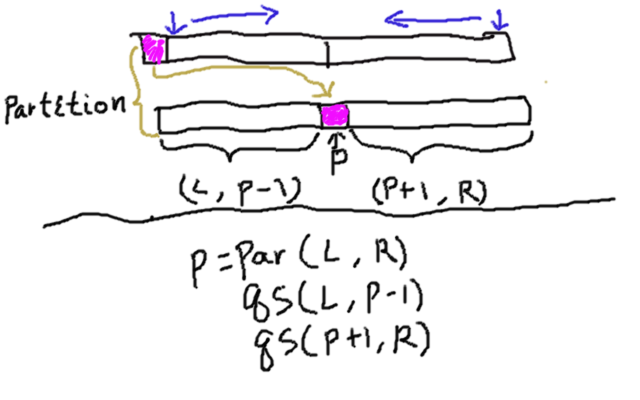 Partetion
P
(L, P-1) (P+1, R)
P=Par(L, R)
qS(L, P-1)
qS(P+1, R)